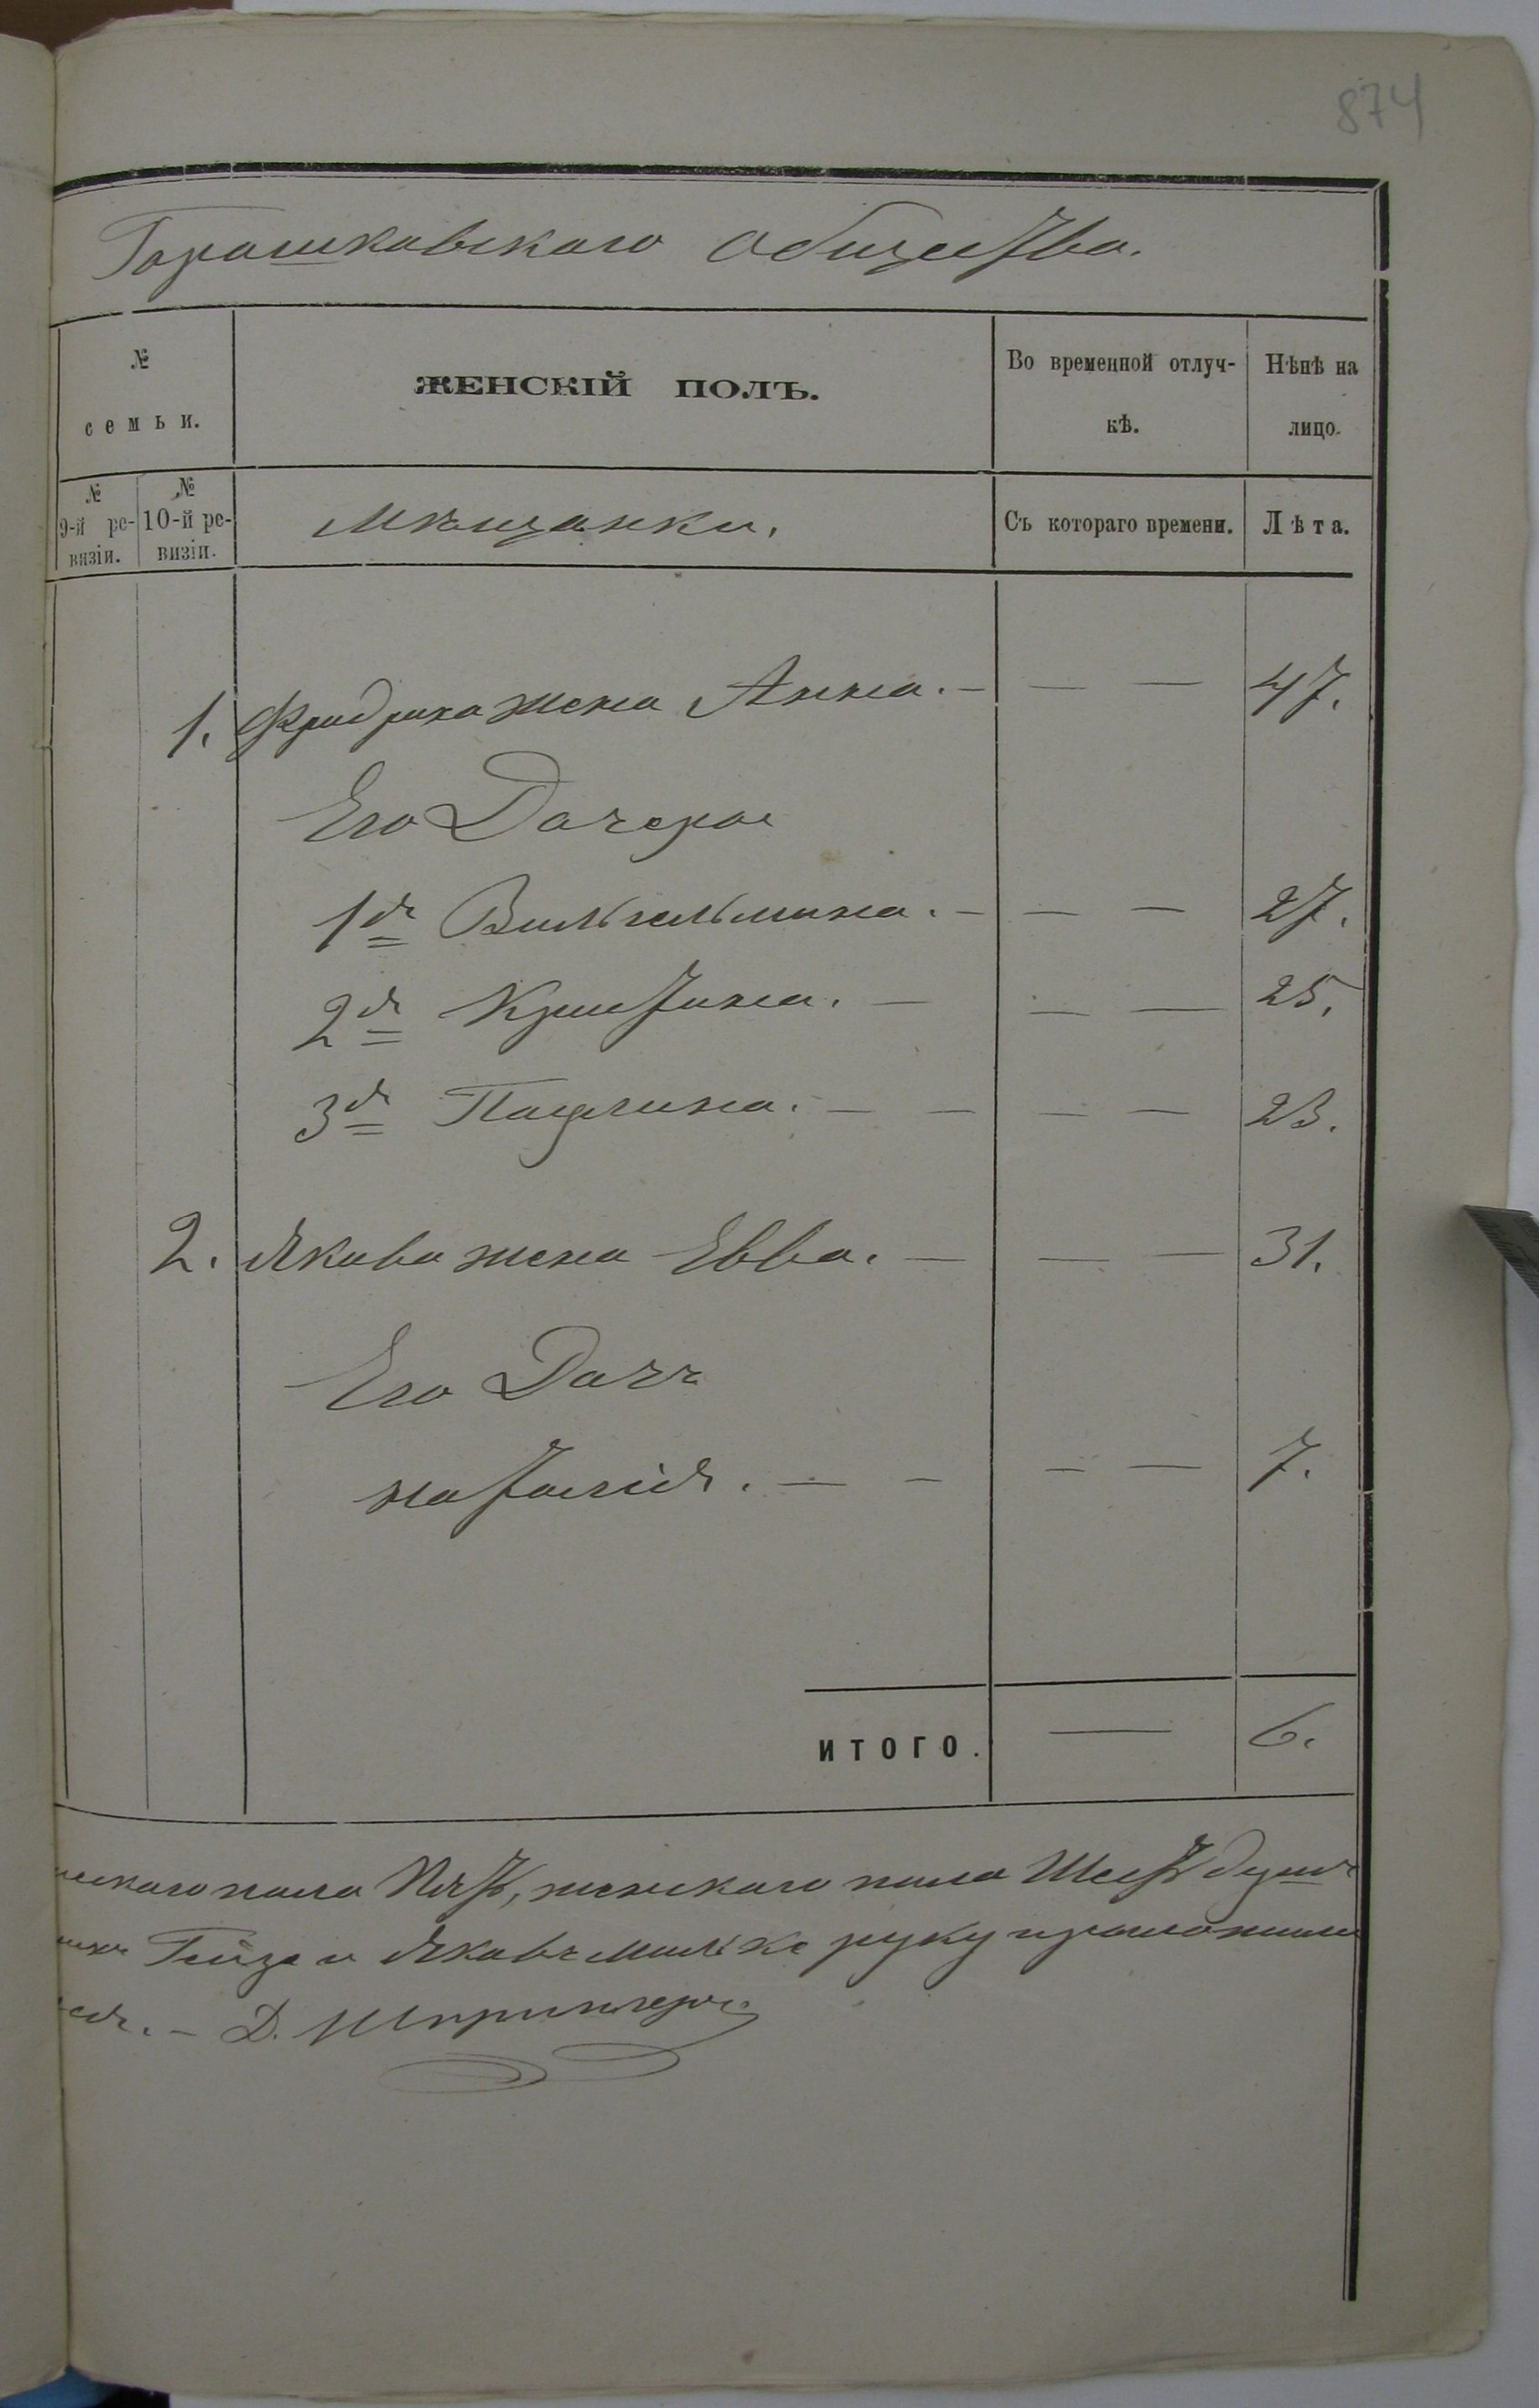 874
Горошковскаго общества.
№
семьи.
ЖЕНСКІЙ ПОЛЪ.
Во временной отлуч-
кѣ.
Нѣнѣ на
лицо.
№
9-й ре-
визіи.
№
10-й ре-
визіи.
Мѣщанки.
Съ котораго времени.
Лѣта.
1. Фридриха жена Анна. — — — 47.
Его Дочери
1я Вильгельмина. — — — 27.
2я Кристина. — — — 25.
3я Паулина. — — — — 23.
2. Якова жена Евва. — — — 31.
Его Дочь
Наталія. — — — — 7.
ИТОГО. — 6.
ескаго пола Пять, женскаго пола Шесть душъ
Гейзе и Яковъ Мильке руку приложили
Д. Шпрингеръ